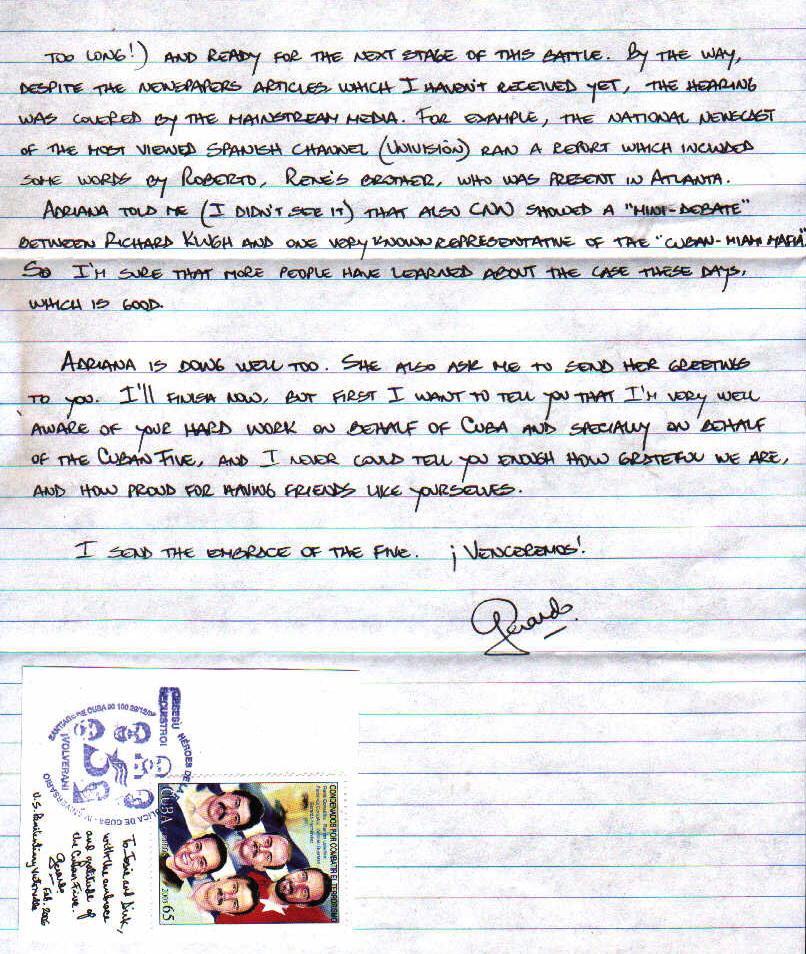 TOO LONG!) AND READY FOR THE NEXT STAGE OF THIS BATTLE. BY THE WAY,
DESPITE THE NEWSPAPERS ARTICLES WHICH I HAVEN'T RECEIVED YET, THE HEARING
WAS COVERED BY THE MAINSTREAM MEDIA. FOR EXAMPLE, THE NATIONAL NEWSCAST
OF THE MOST VIEWED SPANISH CHANNEL (UNIVISIÓN) RAN A REPORT WHICH INCLUDED
SOME WORDS BY ROBERTO, RENE'S BROTHER, WHO WAS PRESENT IN ATLANTA.
ADRIANA TOLD ME (I DIDN'T SEE IT) THAT ALSO CNN SHOWED A "MINI-DEBATE"
BETWEEN RICHARD KLUGH AND ONE VERY KNOWN REPRESENTATIVE OF THE "CUBAN-MIAMI MAFIA".
SO I'M SURE THAT MORE PEOPLE HAVE LEARNED ABOUT THE CASE THESE DAYS,
WHICH IS GOOD.
ADRIANA IS DOING WELL TOO. SHE ALSO ASK ME TO SEND HER GREETINGS
TO YOU. I'll FINISH NOW, BUT FIRST I WANT TO TELL YOU THAT I'M VERY WELL
AWARE OF YOUR HARD WORK ON BEHALF OF CUBA AND SPECIALLY ON BEHALF
OF THE CUBAN FIVE, AND I NEVER COULD TELL YOU ENOUGH HOW GRATEFUL WE ARE,
AND HOW PROUD FOR HAVING FRIENDS LIKE YOURSELVES.
I SEND THE EMBRACE OF THE FIVE. ¡VENCEREMOS!
Gerardo
SANTIAGO DE CUBA
SECUESTRO!
HÉROES DE LA
¡VOLVERAN!
ANIVERSARIO
CONDENADOS POR COMBATIR EL TERRORISMO
CUBA
2003 65
and Dick,
with the embrace
and gratitude of
the Cuban Five.
Gerardo
Feb. 2006
U.S. Penitentiary Victorville